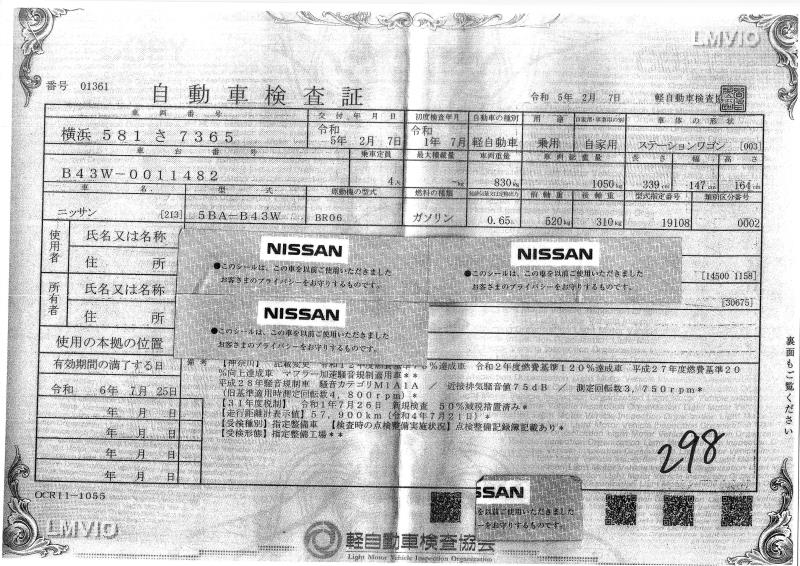 LMVIO
番号 01361
自動車検査証
令和 5年 2月 7日
軽自動車検査協
車両番号
交付年月日
初度検査年月
自動車の種別
用途
自家用・事業用の別
車体の形状
横浜 581 さ 7365
令和 5年 2月 7日
令和 1年 7月
軽自動車
乗用
自家用
ステーションワゴン [003]
車台番号
乗車定員
最大積載量
車両重量
車両総重量
長さ
幅
高さ
B43W-0011482
4人
-kg
830kg
1050kg
339cm
147cm
164cm
車名
型式
原動機の型式
燃料の種類
前軸重
後軸重
型式指定番号
類別区分番号
ニッサン [213]
5BA-B43W
BR06
ガソリン
0.65
520kg
310kg
19108
0002
使用者
氏名又は名称
住所
[14500 1158]
所有者
氏名又は名称
住所
[30675]
使用の本拠の位置
NISSAN
●このシールは、この車を以前ご使用いただきました
お客さまのプライバシーをお守りするものです。
NISSAN
●このシールは、この車を以前ご使用いただきました
お客さまのプライバシーをお守りするものです。
NISSAN
●このシールは、この車を以前ご使用いただきました
お客さまのプライバシーをお守りするものです。
有効期間の満了する日
令和 6年 7月 25日
年 月 日
年 月 日
年 月 日
年 月 日
備考
達成車 令和2年度燃費基準120%達成車 平成27年度燃費基準20
%向上達成車 マフラー加速騒音規制適用車**
平成28年騒音規制車 騒音カテゴリM1A1A / 近接排気騒音値75dB / 測定回転数3,750rpm*
(旧基準適用時測定回転数4,800rpm)*
[31年度税制] 令和1年7月26日 新規検査 50%減税措置済み*
[走行距離計表示値]57,900km(令和4年7月21日)*
[受検種別]指定整備車 [検査時の点検整備実施状況]点検整備記録簿記載あり*
[受検形態]指定整備工場**
裏面もご覧ください
298
OCR11-1055
SSAN
以前ご使用いただきました
ーをお守りするものです。
LMVIO
軽自動車検査協会
Light Motor Vehicle Inspection Organization